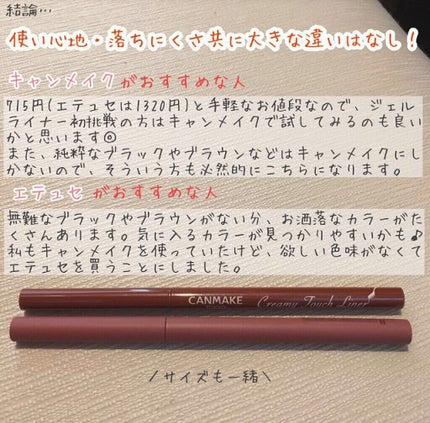 結論…
使い心地・落ちにくさ共に大きな違いはなし！
キャンメイクがおすすめな人
715円(エテュセは1320円)と手軽なお値段なので、ジェル
ライナー初挑戦の方はキャンメイクで試してみるのも良い
かと思います◎
また、純粋なブラックやブラウンなどはキャンメイクにし
かないので、そういう方も必然的にこちらになります。
エテュセ がおすすめな人
無難なブラックやブラウンがない分、お洒落なカラーがた
くさんあります。気に入るカラーが見つかりやすいかも♪
私もキャンメイクを使っていたけど、欲しい色味がなくて
エテュセを買うことにしました。
CANMAKE Creamy Touch Liner
/サイズも一緒\